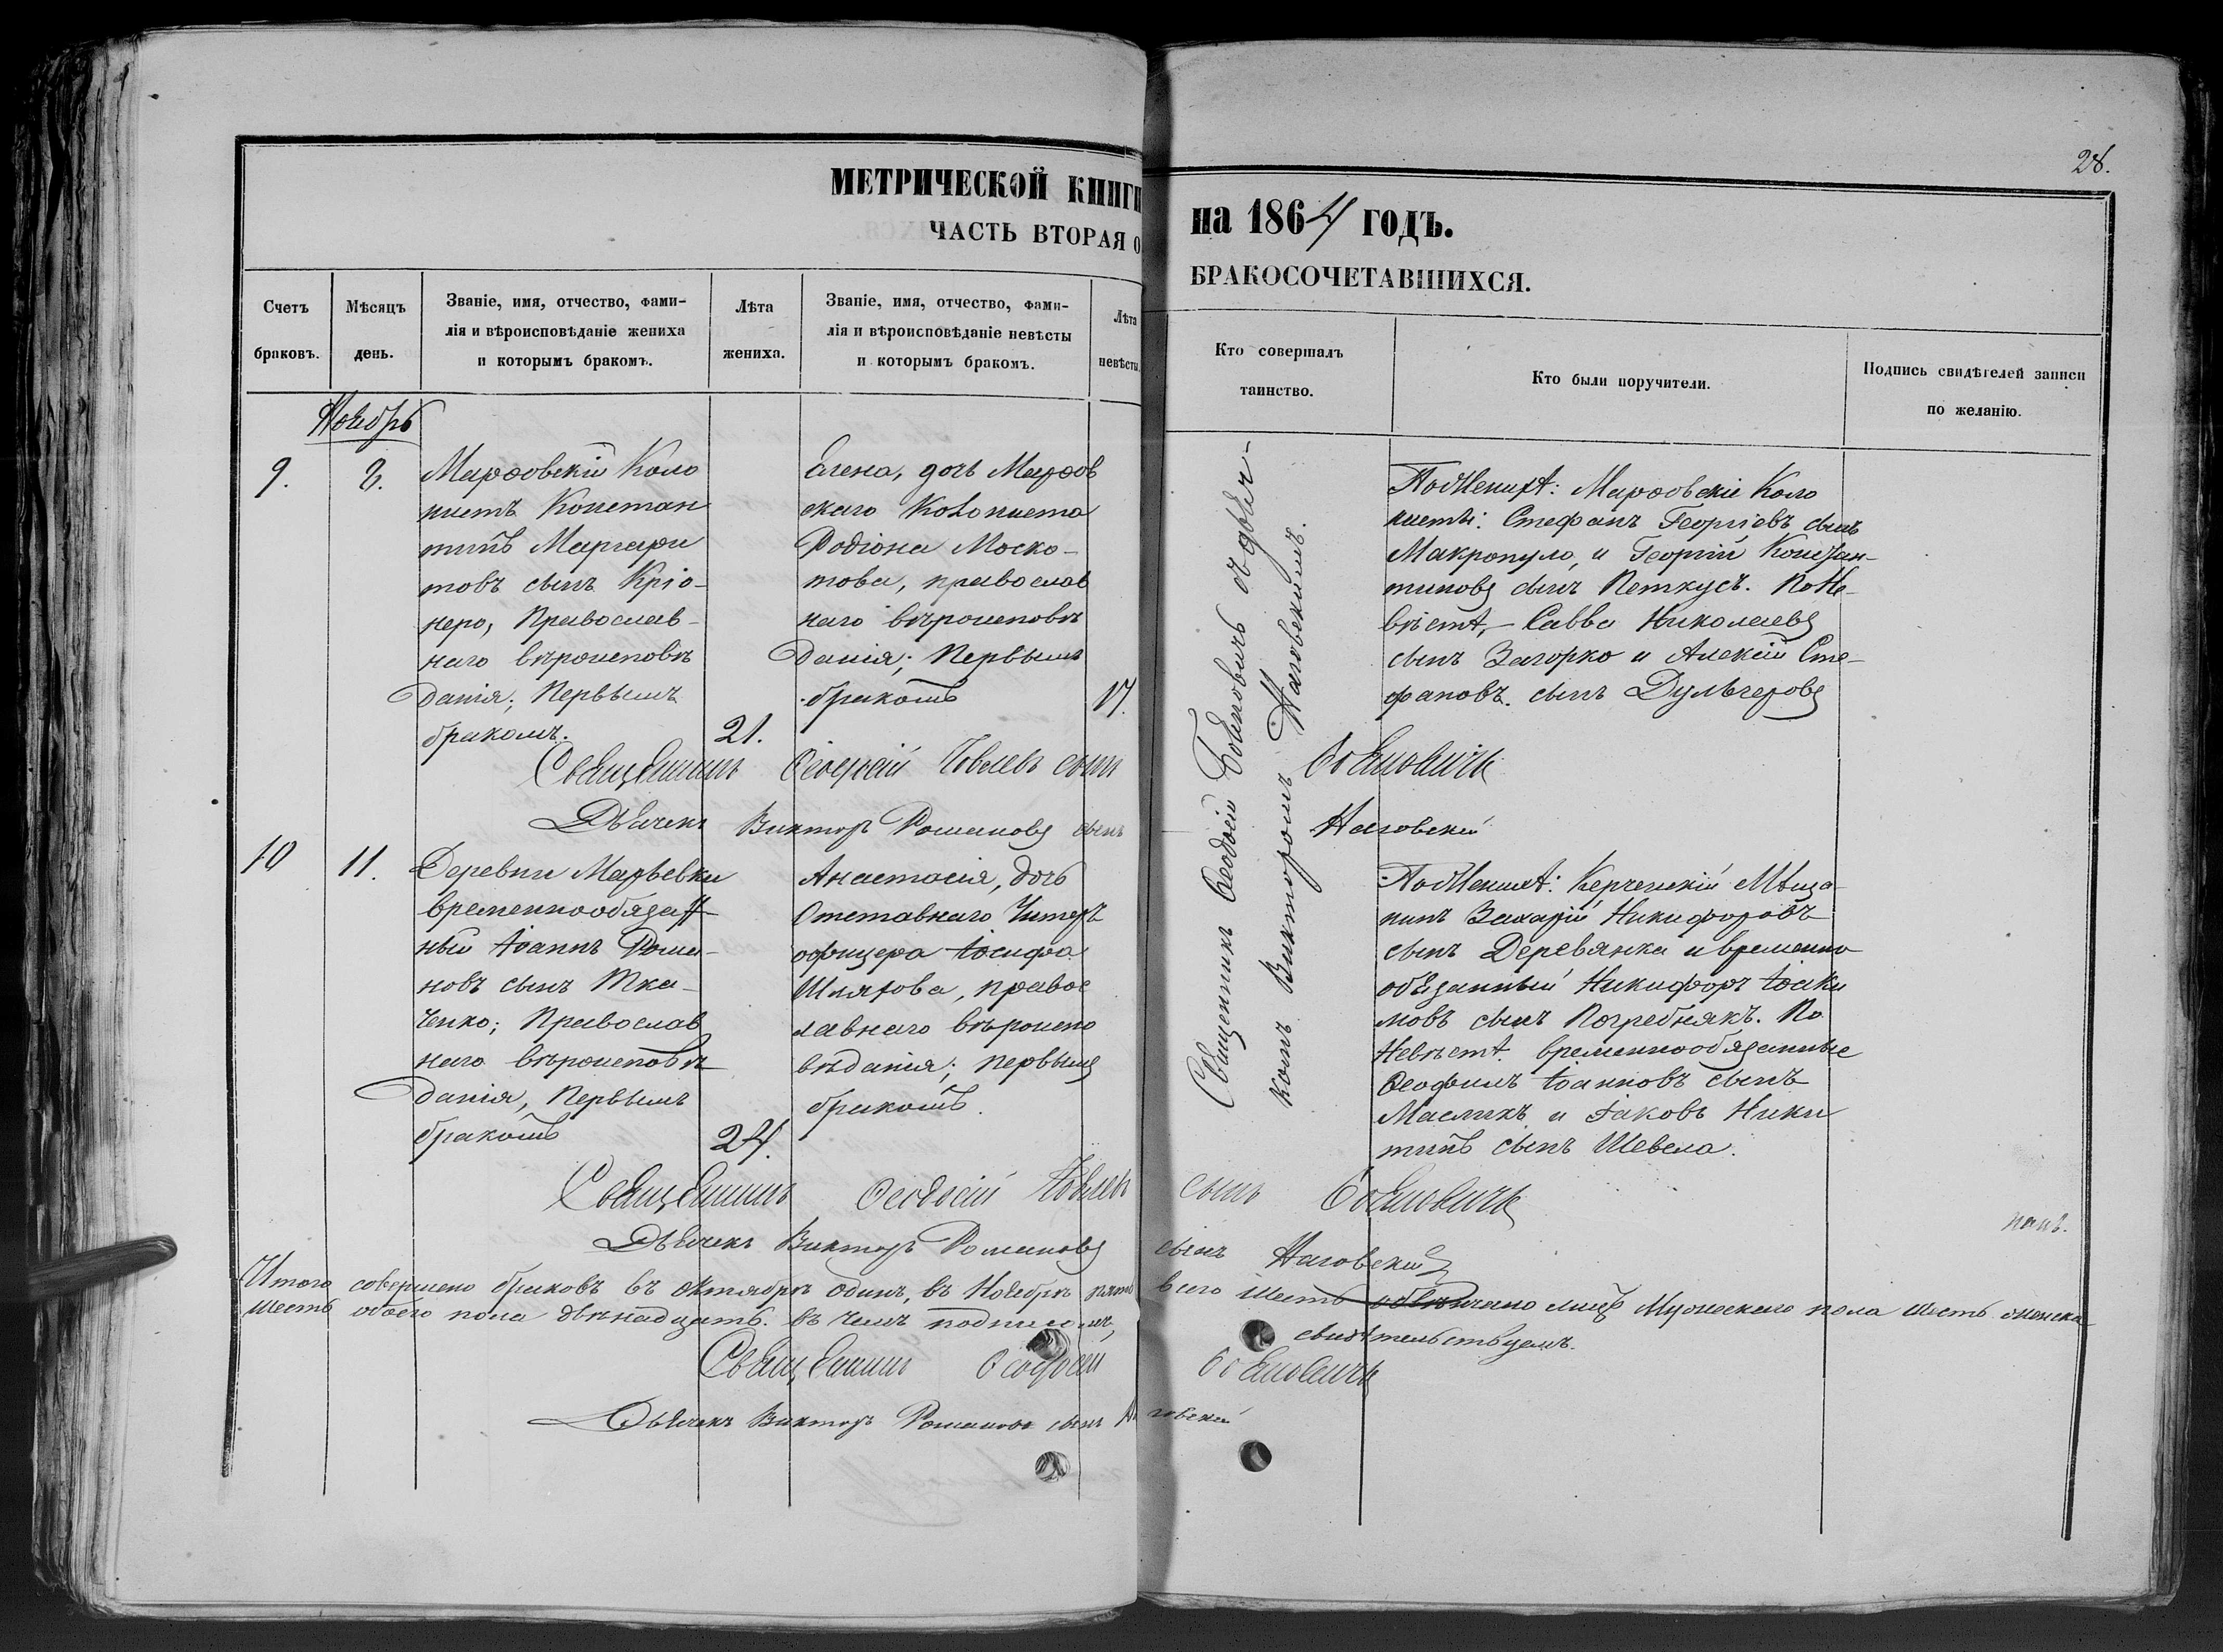 28.
МЕТРИЧЕСКОЙ КНИГИ на 1864 ГОДЪ.
ЧАСТЬ ВТОРАЯ О БРАКОСОЧЕТАВШИХСЯ.
Счетъ
браковъ.
Мѣсяцъ
день.
Званіе, имя, отчество, фами-
лія и вѣроисповѣданіе жениха
и которымъ бракомъ.
Лѣта
жениха.
Званіе, имя, отчество, фами-
лія и вѣроисповѣданіе невѣсты
и которымъ бракомъ.
Лѣта
невѣсты.
Кто совершалъ
таинство.
Кто были поручители.
Подпись свидѣтелей записи
по желанію.
Ноябрь
9.
8.
Марфовскій Коло
нистъ Констан
тинъ Маргари
товъ сынъ Кріо-
неро, Православ-
наго вѣроисповѣ
данія; Первымъ
бракомъ.
21.
Елена, дочь Марфов
скаго Колониста
Родіона Моско-
това, православ
наго вѣроисповѣ
данія; Первымъ
бракомъ
17.
Священникъ Ѳеодосій Бояновичъ съ дьяч-
комъ Викторомъ Наговскимъ.
По Женихѣ: Марфовскіе Коло
нисты: Стефанъ Георгіевъ сынъ
Макропуло, и Георгій Констан-
тиновъ сынъ Петкусъ. По Не-
вѣстѣ, – Савва Николаевъ
сынъ Загорко и Алексій Сте-
фановъ сынъ Дульгеровъ
Священникъ Ѳеодосій Іовлевъ сынъ Бояновичъ
Дьячекъ Викторъ Романовъ сынъ Наговскій
10
11.
Деревни Марьевки
временнообязан-
ный Іоаннъ Рома-
новъ сынъ Тка-
ченко; Православ
наго вѣроисповѣ
данія, Первымъ
бракомъ
24.
Анастасія, дочь
Отставнаго Унтеръ
офицера Іосифа
Шляхова, правос
лавнаго вѣроиспо
вѣданія; первымъ
бракомъ.
По Женихѣ: Керченскій Мѣща-
нинъ Захарій Никифоровъ
сынъ Деревянка и временно
обязанный Никифоръ Іоаки
мовъ сынъ Погребнякъ. По
Невѣстѣ. временнообязанные
Ѳеофилъ Іоанновъ сынъ
Масликъ и Іаковъ Ники
тинъ сынъ Шевела.
Священникъ Ѳеодосій Іовлевъ сынъ Бояновичъ
Дьячекъ Викторъ Романовъ сынъ Наговскій
Итого совершено браковъ въ октябрѣ одинъ, въ Ноябрѣ пять всего шесть обвѣнчано лицъ Мужескаго пола шесть женска
шесть обоего пола двѣнадцать. въ чемъ подписомъ, свидѣтельствуемъ.
Священникъ Ѳеодосій Бояновичъ
Дьячекъ Викторъ Романовъ сынъ Наговскій